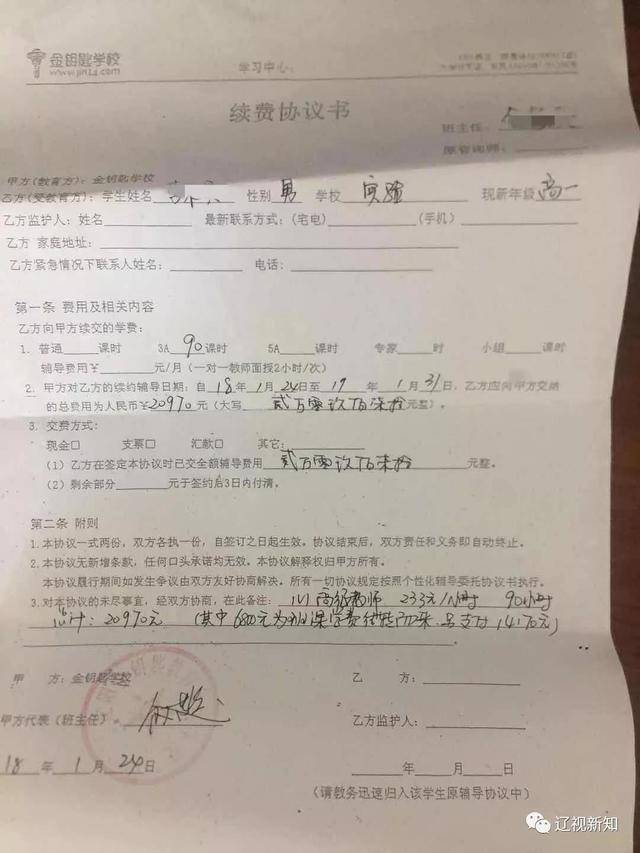 金钥匙学校
www.jin14.com
学习中心:
续费协议书
班主任:
原咨询师:
甲方(教育方): 金钥匙学校
乙方(受教育方): 学生姓名 性别 男 学校 实验 现新年级 高一
乙方监护人: 姓名 最新联系方式: (宅电) (手机)
乙方 家庭地址:
乙方紧急情况下联系人姓名: 电话:
第一条 费用及相关内容
乙方向甲方续交的学费:
1. 普通 课时 3A 90 课时 5A 课时 专家 时 小组 课时
辅导费用¥ 元/月 (一对一教师面授2小时/次)
2. 甲方对乙方的续约辅导日期: 自 18 年 1 月 24 日至 19 年 1 月 31 日, 乙方应向甲方交纳
的总费用为人民币¥20970 元 (大写 贰万零玖佰柒拾 元整)。
3. 交费方式:
现金口 支票口 汇款口 其它:
(1) 乙方在签定本协议时已交金额辅导费用 贰万零玖佰柒拾 元整。
(2) 剩余部分 元于签约后3日内付清。
第二条 附则
1. 本协议一式两份, 双方各执一份, 自签订之日起生效。协议结束后, 双方责任和义务即自动终止。
2. 本协议无新增条款, 任何口头承诺均无效。本协议解释权归甲方所有。
本协议履行期间如发生争议由双方友好协商解决。所有一切协议规定按照个性化辅导委托协议书执行。
3. 对本协议的未尽事宜, 经双方协商, 在此备注: 1V1 高级教师 233元/小时 90小时
总计: 20970元 (其中6800元为 课学费 转 来 另支付14170元)
甲 方: 金钥匙学校 乙 方:
甲方代表 (班主任): 乙方监护人:
18 年 1 月 24 日 年 月 日
(请教务迅速归入该学生原辅导协议中)
辽视新知